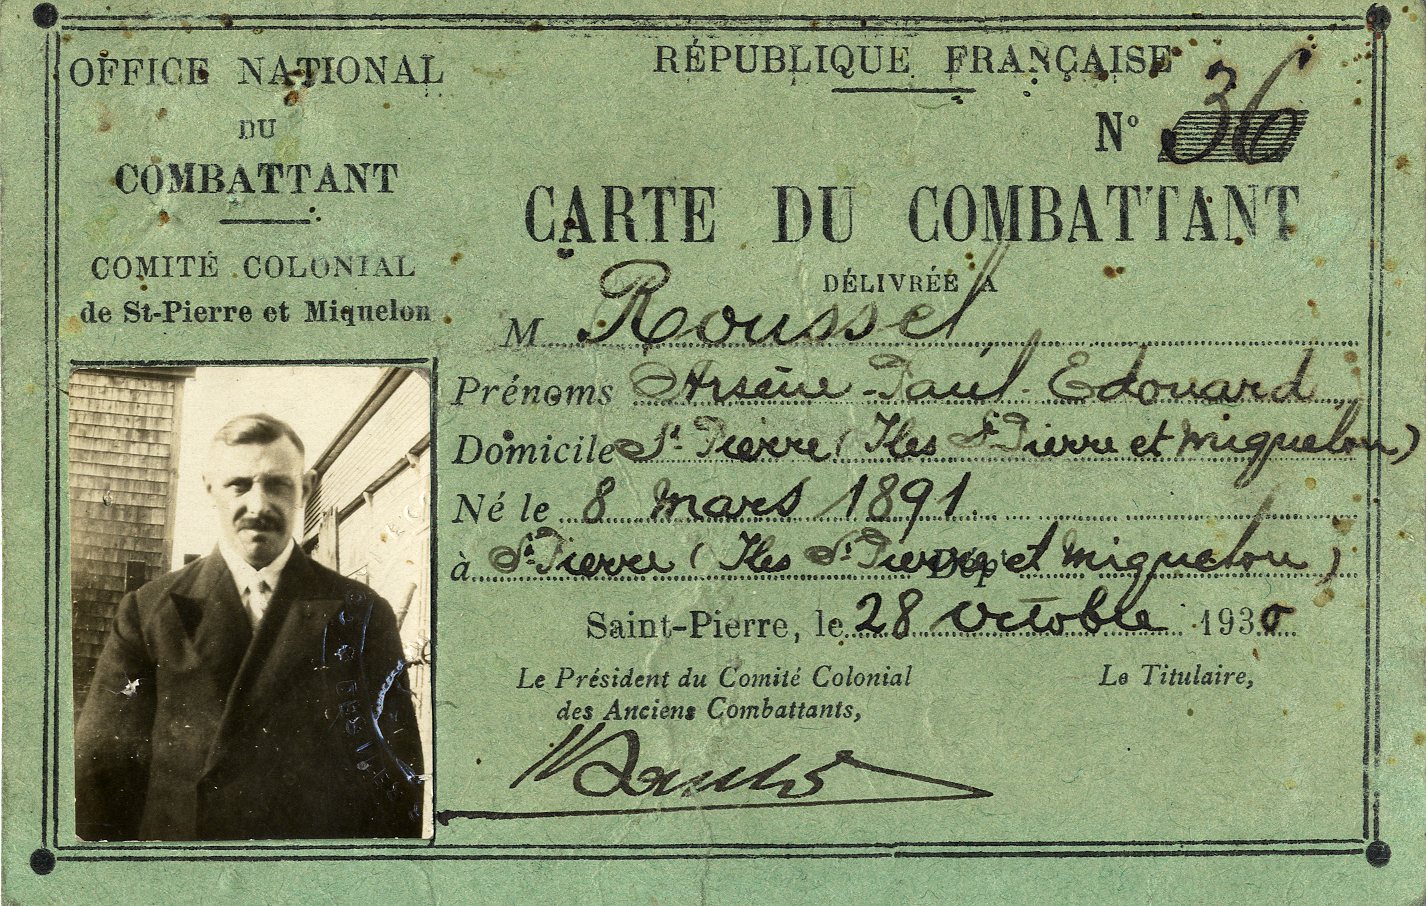 OFFICE NATIONAL
DU
COMBATTANT
COMITÉ COLONIAL
de St-Pierre et Miquelon
RÉPUBLIQUE FRANÇAISE
Nº 36
CARTE DU COMBATTANT
DÉLIVRÉE A
M Roussel
Prénoms Arsène-Paul-Edouard
Domicile St. Pierre (Iles St Pierre et Miquelon)
Né le 8 mars 1891.
à St. Pierre (Iles St. Pierre et Miquelon)
Saint-Pierre, le 28 octobre 1930
Le Président du Comité Colonial
des Anciens Combattants,
Le Titulaire,